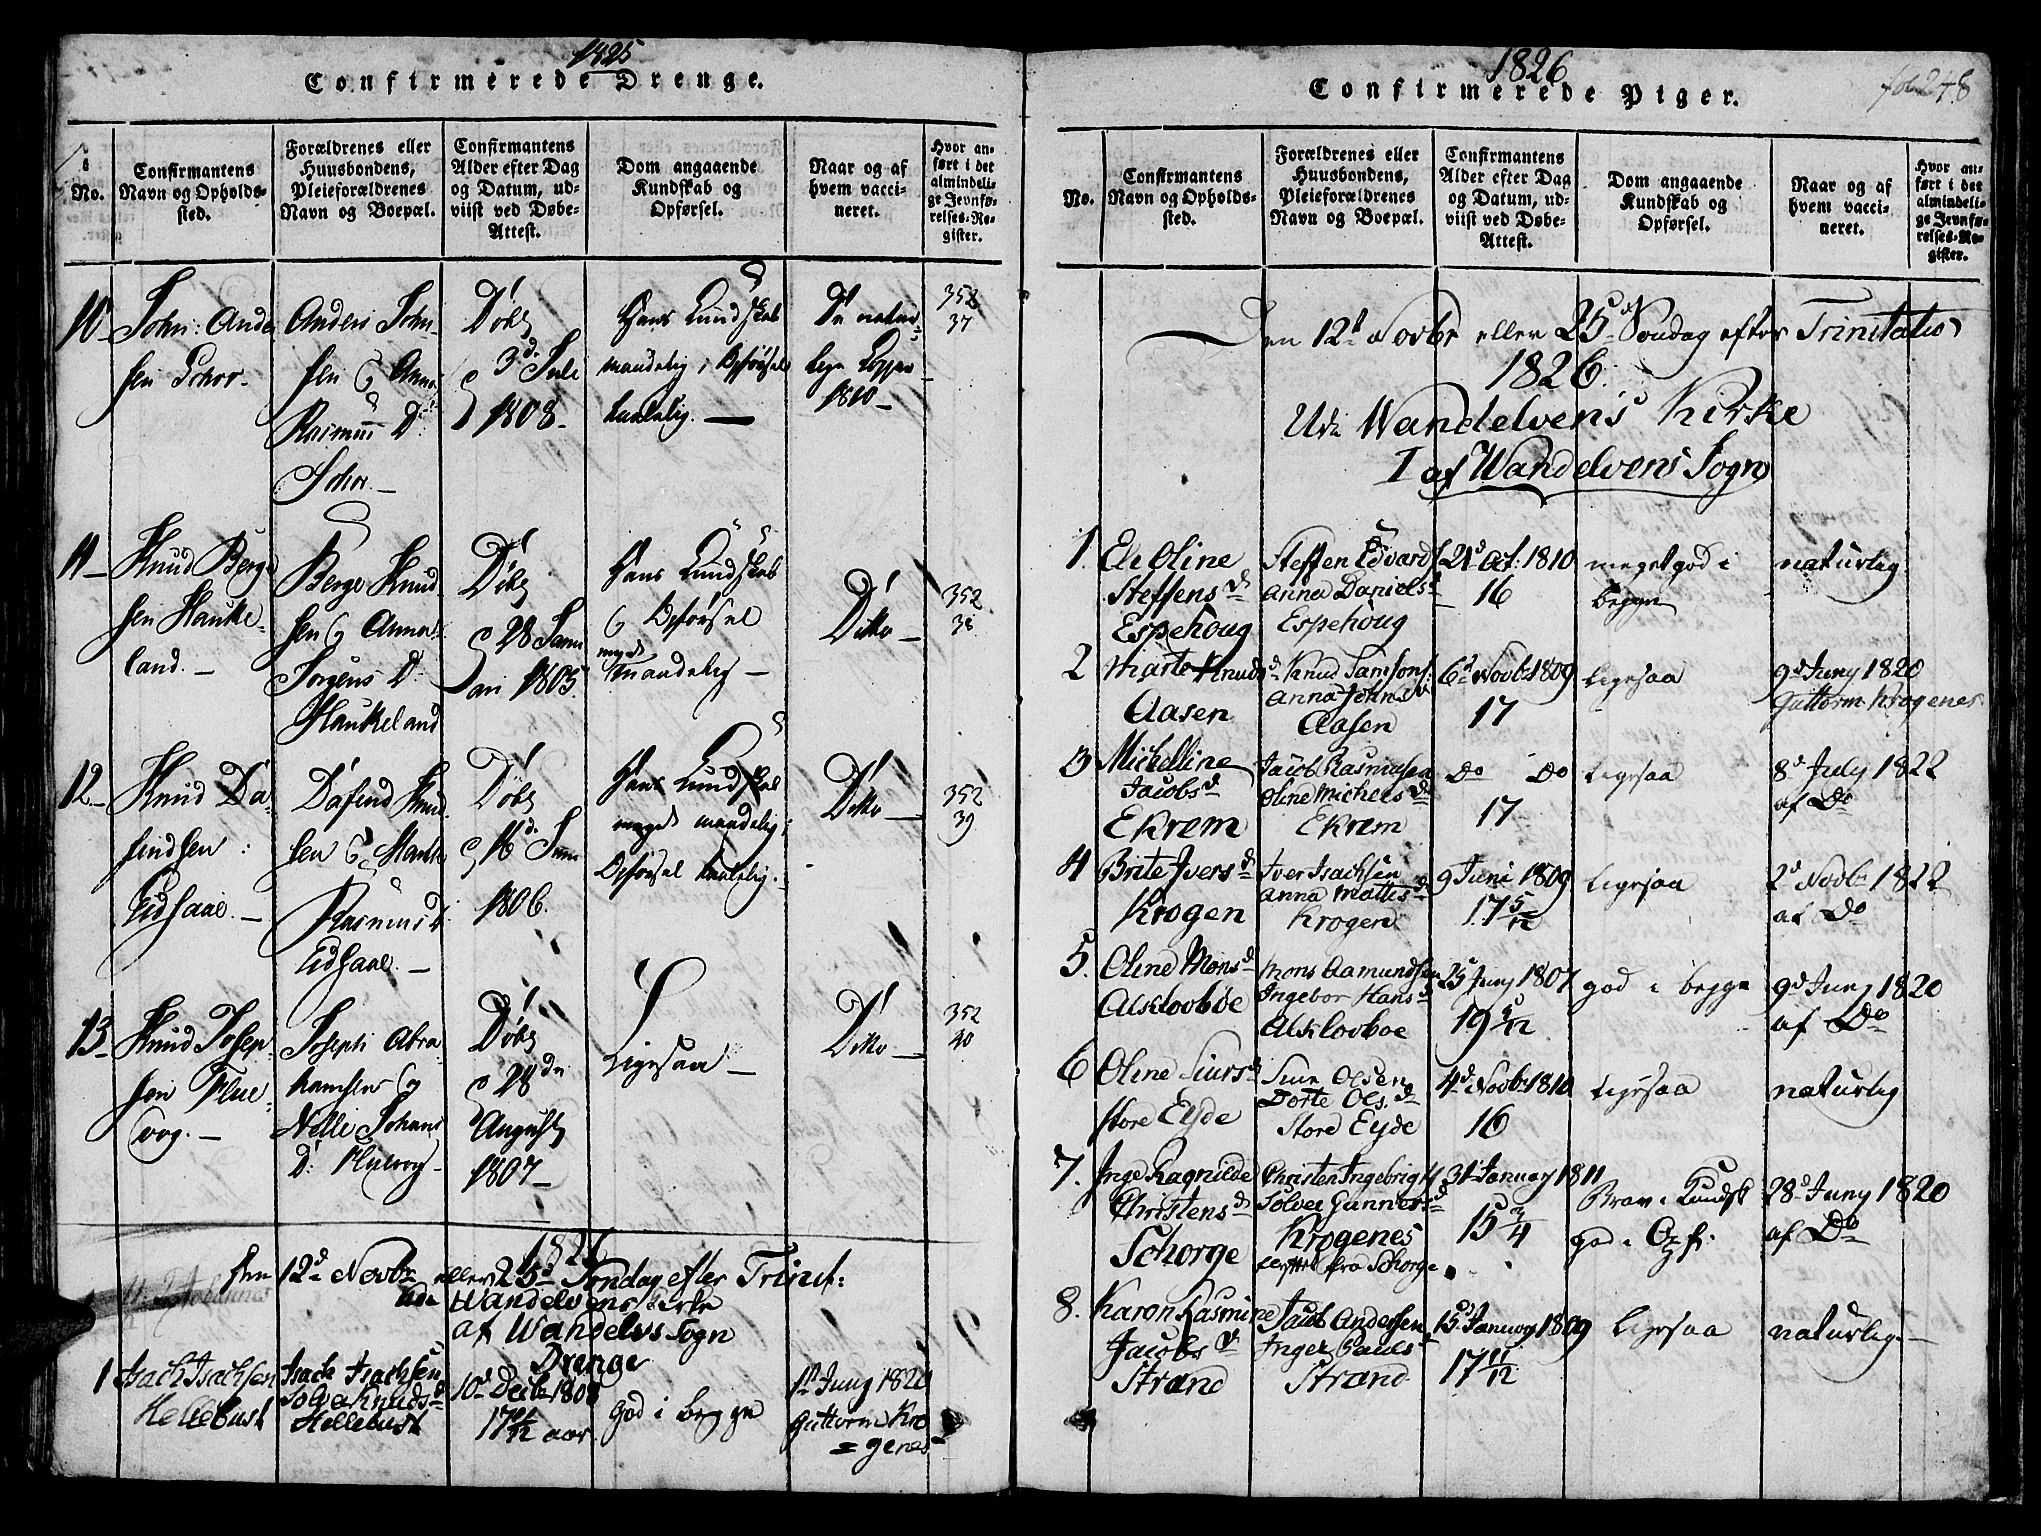 1825
Confirmerede Drenge.
No.
Confirmantens
Navn og Opholds-
sted.
Forældrenes eller
Huusbondens,
Pleieforældrenes
Navn og Boepæl.
Confirmantens
Alder efter Dag
og Datum, ud-
viist ved Døbe-
Attest.
Dom angaaende
Kundskab og
Opførsel.
Naar og af
hvem vacci-
neret.
Hvor an-
ført i det
almindeli-
ge Jevnfø-
relses-Re-
gister.
10
John: Ander
sen Schor-
Anders John-
sen & Anne
Rasmus D:
Schor.-
Døbt
3d Juli
1808-
Hans Kundskab
maadelig, Opførsel
Død natur-
lige Kopper
1810-
352
37
11-
Knud Berge
sen Hauke-
land.-
Berge Knud
sen & Anna
Jørgens D:
Haukeland
Døbt
28 Janu
ari 1805.
Hans Kundskab
& Opførsel
meget
maadelig-
Ditto-
352
38
12-
Knud Da-
findsen:
Eidsaae.-
Dafind Knud
sen &
Rasmus d:
Eidsaae.-
Døbt
16d
1806.
Hans Kundskab
meget maadelig;
Opførsel
Ditto-
352
39
13-
Knud Josep-
sen Flue-
vog.-
Joseph Abra-
hamsen &
Nelle Johans
D: Fluevog-
Døbt
28de
August
1807-
Ligesaa-
Ditto-
352
40
1826
Den 12d Novbr eller 25d Søndag efter Trinit:
Udi Wandelvens Kirke
af Wandelvs Sogn
Drenge
1
Isach Isachsen
Hellebust
Isach Isachsen
Solve Knudsd
Hellebust
10d Decbr 1808
17 11/12 aar.
God i begge
1d Juny 1820
Guttorm Kro
= genes
1826
Confirmerede Piger.
fol 248
No.
Confirmantens
Navn og Opholds-
sted.
Forældrenes eller
Huusbondens,
Pleieforældrenes
Navn og Boepæl.
Confirmantens
Alder efter Dag
og Datum, ud-
viist ved Døbe-
Attest.
Dom angaaende
Kundskab og
Opførsel.
Naar og af
hvem vacci-
neret.
Hvor an-
ført i det
almindeli-
ge Jevnfø-
relses-Re-
gister.
Den 12d Novbr eller 25d Søndag efter Trinitatis
1826.
Udi Wandelvens Kirke
I af Wandelvens Sogn
1.
Eli Oline
Steffensd
Espehoug
Steffen Edvards
Anna Danielsd
Espehoug
21d Oct: 1810
16
meget god i
begge
naturlig
2
Marte Knudsd
Aasen
Knud Samsons:
Anna Johnsd
Aasen
6d Novbr 1809
17
Ligesaa
9d Juny 1820
Guttorm Krogenes
3
Michelline
Jacobsd
Ekrem
Jacob Rasmusen
Oline Michelsd
Ekrem
Do Do
17
Ligesaa
8d July 1822
af Do
4
Brite Iversd
Krogen
Iver Isachsen
Anna Mattisd
Krogen
9 Juni 1809
17 5/12
Ligesaa
2d Novbr 1822
af Do
5.
Oline Monsd
Alskovboe
Mons Aamundsen
Ingebor Hansd
Alskovboe
25 Juny 1807
19 5/12
god i begge
9d Juny 1820
af Do
6
Oline Siursd
Store Eyde
Siur Olsen
Dorte Ols.d
Store Eyde
4d Novbr 1810
16
Ligesaa
naturlig
7.
Inge Ragnilde
Christensd
Schorge
Christen Ingebrigts
Solvei Gunnersd
Krogenes
flyttet fra Schorge
31 January 1811
15 3/4
Brav i Kundsk
god i Opf:
28d Juny 1820
af Do
8.
Karen Rasmine
Jacobsd
Strand
Jacob Andersen
Inger Pauls
Strand
15d January 1809
17 11/12
Ligesaa
naturlig-